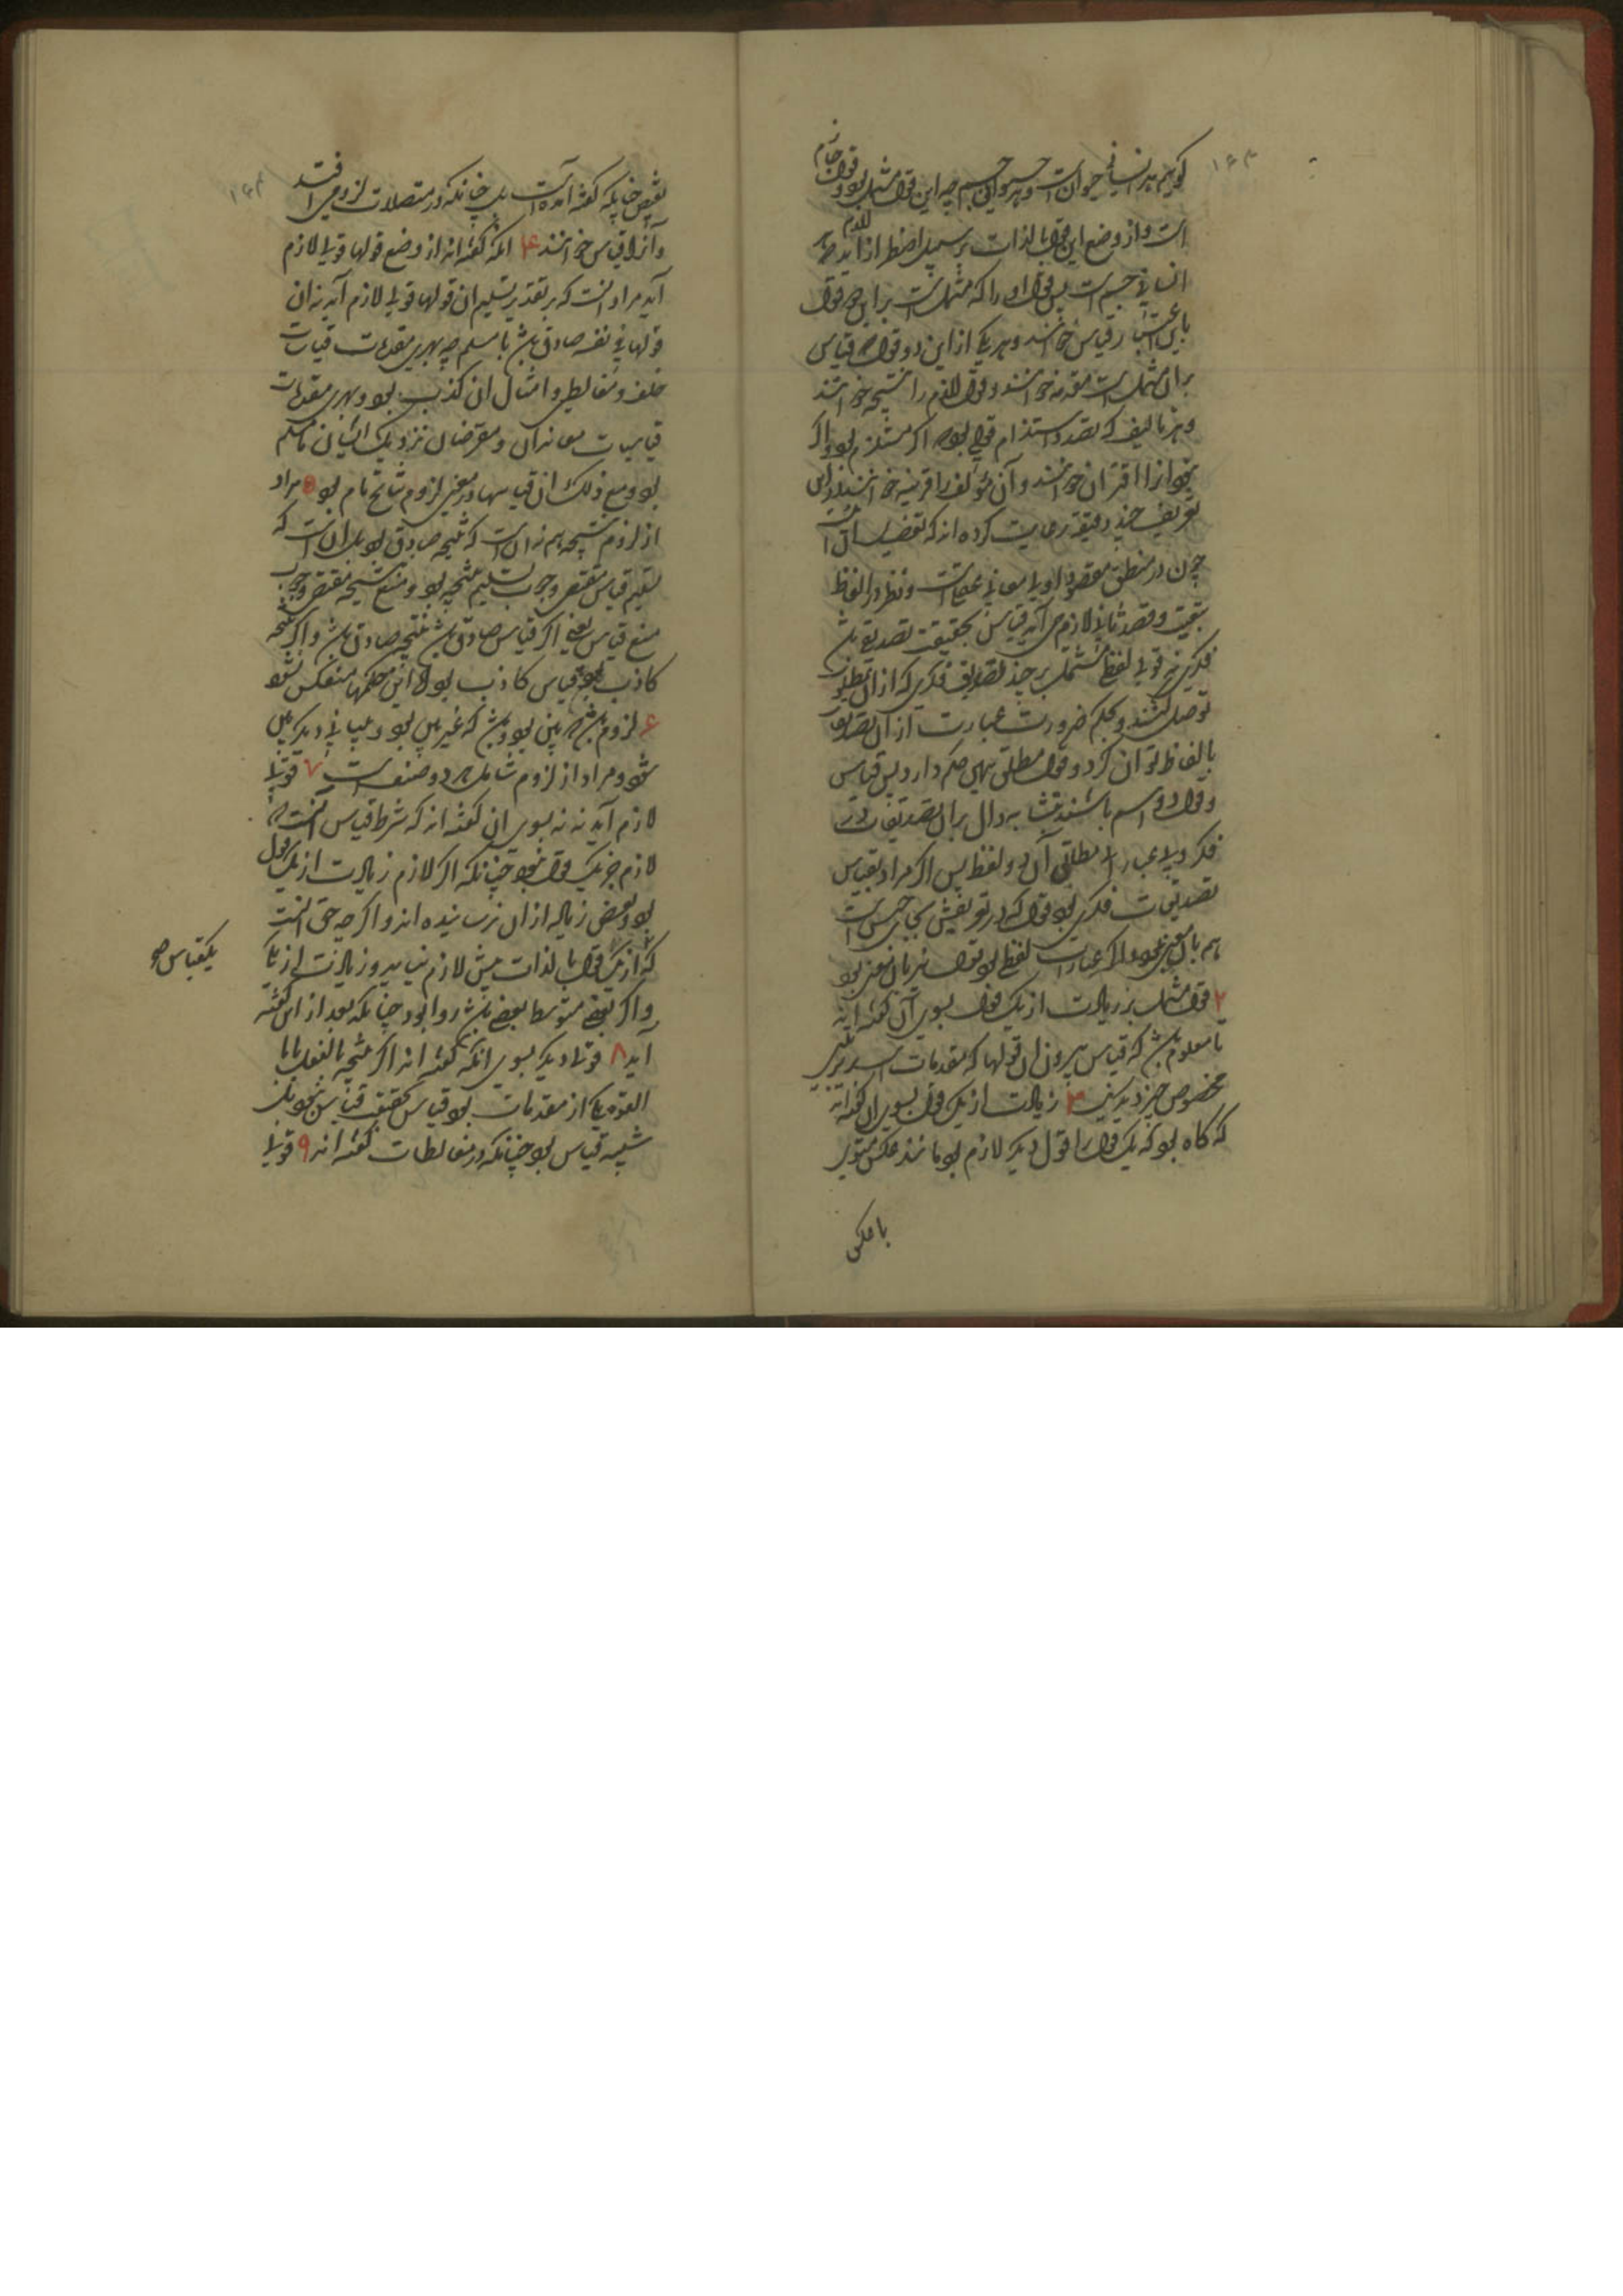 گوییم هر انسانی حیوان است و هر حیوانی جسم چه این قول مشتمل بود بر دو قول جازم
است و از وضع این دو قول بالذات بر سبیل اضطرار لازم آید که هر
انسانی جسم است پس قول اول را که مشتمل است بر این دو قول
باین اعتبار قیاس خوانند و هر یکی از این دو قول که قیاس
بران مشتمل است مقدمه خوانند و قول لازم را نتیجه خوانند
و هر تالیف که بقصد استلزام قولی بود اگر مستلزم بود و اگر
نبود آنرا اقتران خوانند و آن مؤلف را قرینه خوانند و در این
تعریف چند دقیقه رعایت کرده اند که تفصیلش این است
چون در منطق مقصود اولی معانی عقلی است و نظر در الفاظ
بتبعیت و قصد ثانی لازم می آید قیاس بحقیقت تصدیقی باشد
فکری نه قولی لفظی مشتمل بر چند تصدیق فکری که از آن بمطلوب
توصل کنند و بحکم ضرورت عبارت از آن تصدیق
بالفاظ توان کرد و قول مطلق همین حکم دارد پس قیاس
و قول دو اسم باشند بتشابه دال بران تصدیقات در
فکر و بر عبارات مطابق آن در لفظ پس اگر مراد بقیاس
تصدیقات فکری بود قول که در تعریفش بجای جنس است
هم بآن معنی بود و اگر عبارات لفظی بود قول نیز بآن معنی بود
۲ قول مشتمل بر زیادت از یک قول بسوی آن گفته اند
تا معلوم باشد که قیاس بیرون آن قولها که مقدمات است بترتیبی
مخصوص چیزی دیگر نیست ۳ زیادت از یک قول بسوی آن گفته اند
که گاه بود که یک قول را قولی دیگر لازم بود مانند عکس مستوی
یا عکس
نقیض چنانکه گفته آمده است یا چنانکه در متصلات لزومی افتد
و آنرا قیاس نخوانند ۴ آنکه گفته اند از وضع قولها قولی لازم
آید مراد آنست که بر تقدیر تسلیم آن قولها قولی لازم آید نه آن
قولها فی نفسه صادق باشد یا مسلم چه بهری مقدمات قیاسات
خلف و مغالطی و امثال آن کذب بود و بهری مقدمات
قیاسات معاندان و معترضان نزدیک ایشان نامسلم
بود و مع ذلک آن قیاسها در معنی لزوم نتایج تام بود ۵ مراد
از لزوم نتیجه هم نه آن است که نتیجه صادق بود بل آن است که
تسلیم قیاس مقتضی وجوب تسلیم نتیجه بود و منع نتیجه مقتضی وجوب
منع قیاس یعنی اگر قیاس صادق باشد نتیجه صادق باشد و اگر نتیجه
کاذب بود قیاس کاذب بود و این حکمها منعکس نشود
۶ لزوم باشد که بین بود و باشد که غیر بین بود و ببیانی دیگر بین
شود و مراد از لزوم شامل هر دو صنف است ۷ قولی
لازم آید نه بسوی آن گفته اند که شرط قیاس آنست که
لازم جز یک قول نبود چنانکه اگر لازم زیادت از یک قول
بود بعضی زیاده از آن ترسانیده اند و اگر چه حق آنست
که از یک قول بالذات بیش لازم نیاید و زیادت از یکی
و اگر بعضی بتوسط بعضی باشد روا بود چنانکه بعد از این گفته
آید ۸ قولی دیگر بسوی آنکه گفته اند اگر نتیجه بالفعل یا با
القوه یکی از مقدمات بود قیاس بحقیقت قیاس نبود بل
شبیه قیاس بود چنانکه در مغالطات گفته اند ۹ قولی
یک قیاس صح